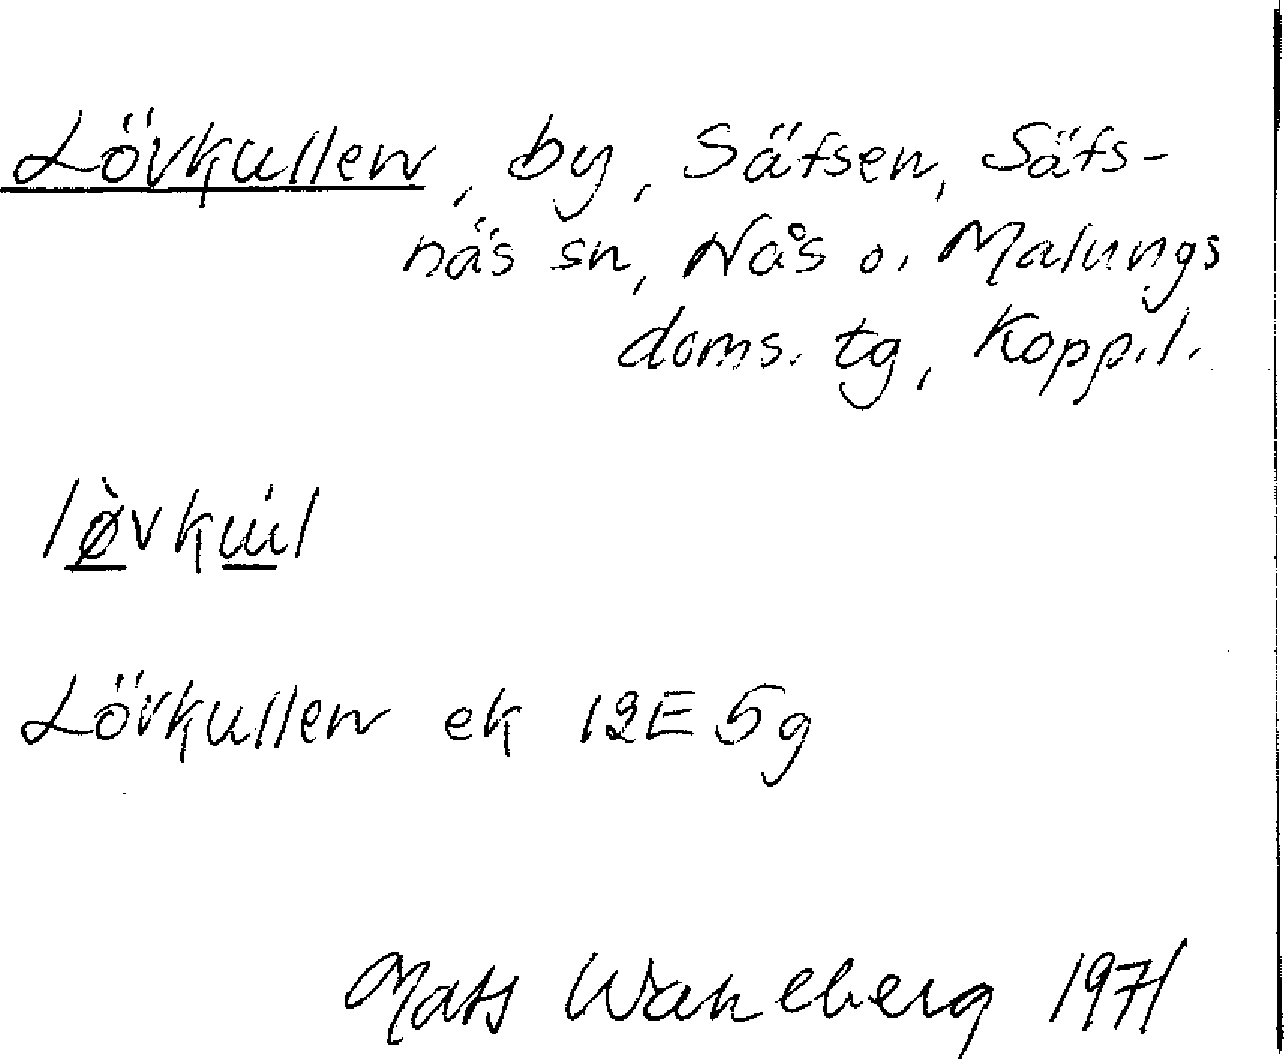 Lövkullen, by, Säfsen, Säfs-
näs sn, Nås o. Malungs
doms. tg, Kopp.l.
Lövkullen ek 12E 5g
Mats Wahlberg 1971